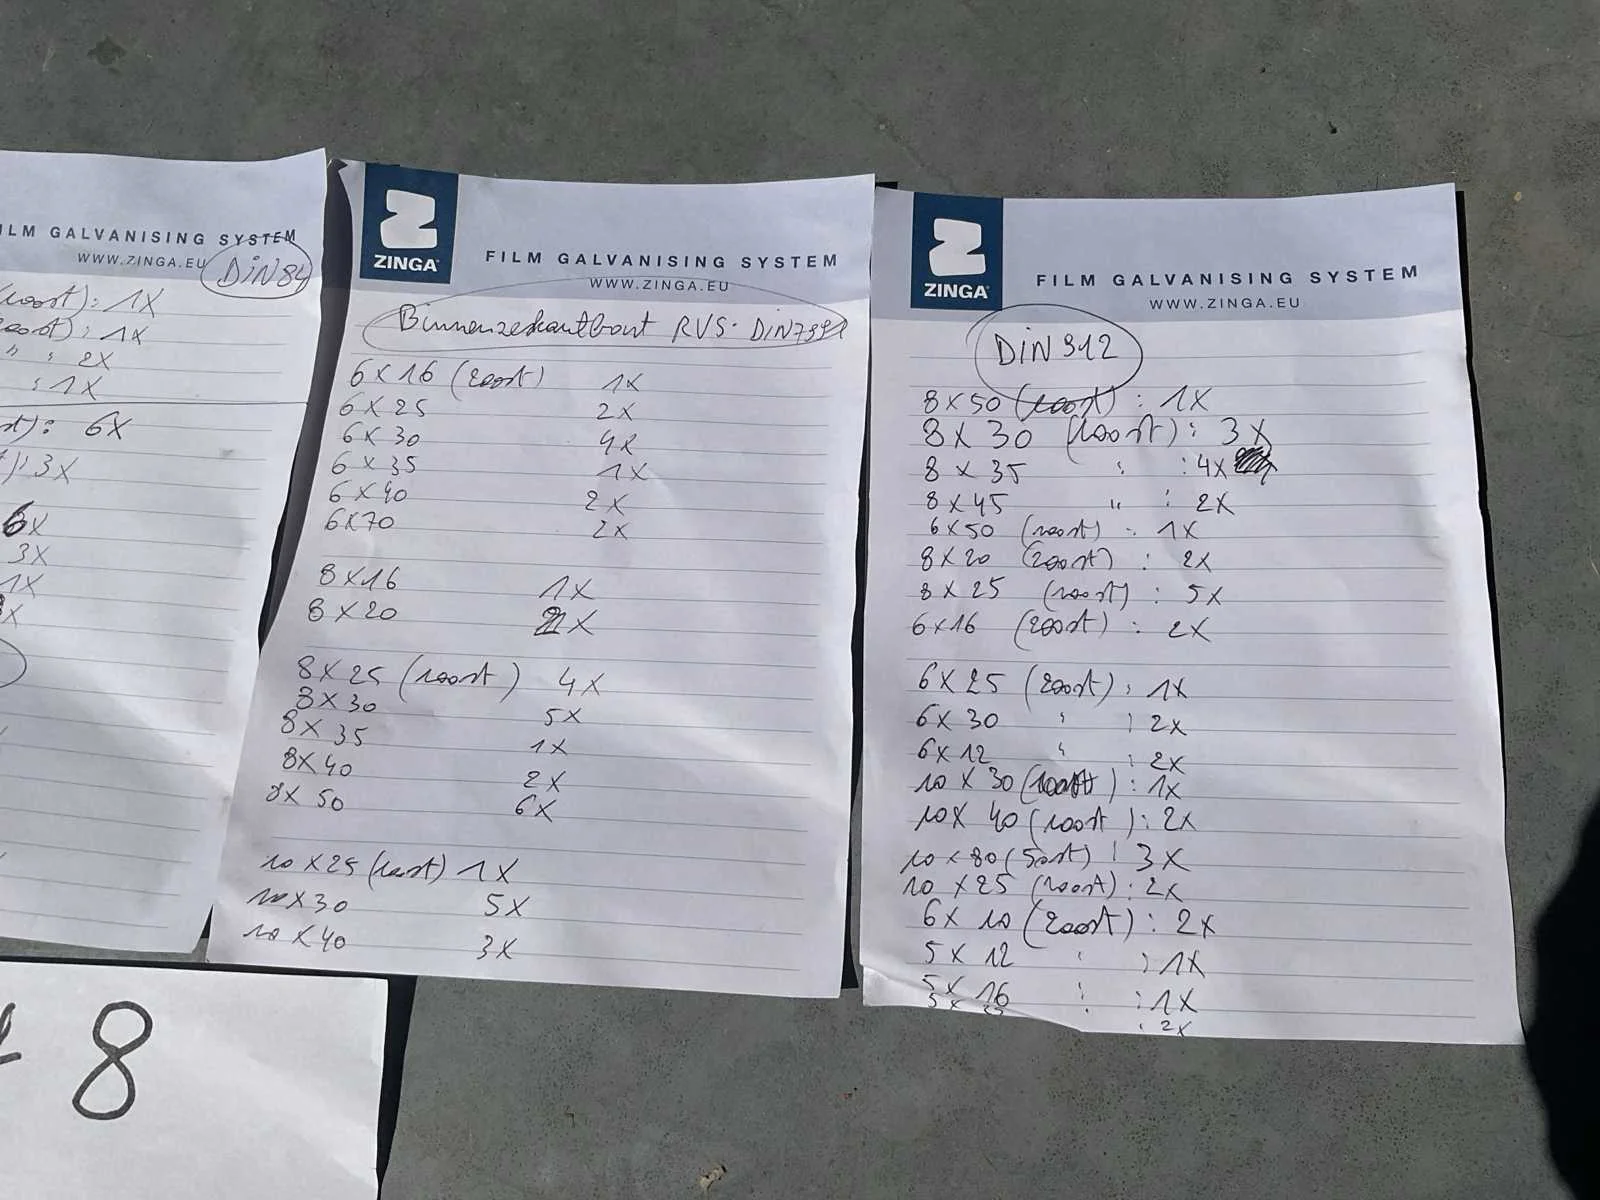 ILM GALVANISING SYSTEM
WWW.ZINGA.EU
DiN 84
: 1X
: 1X
" : 2X
: 1X
: 6X
: 3X
6X
3X
1X
8
ZINGA
FILM GALVANISING SYSTEM
WWW.ZINGA.EU
Binnenzeskantbout RVS.
6 X 16 (200st) 1X
6 X 25 2X
6 X 30 4X
6 X 35 1X
6 X 40 2X
6X70 2X
8 X16 1X
8 X 20 X
8 X 25 (100st) 4X
8 X 30 5X
8 X 35 1X
8X 40 2X
8X 50 6X
10 X 25 (100st) 1X
10 X 30 5X
10 X 40 3X
ZINGA
FILM GALVANISING SYSTEM
WWW.ZINGA.EU
DiN 912
8 X 50 (100st) : 1X
8 X 30 (100st) : 3X
8 X 35 " : 4X
8 X 45 " : 2X
6 X 50 (100st) : 1X
8 X 20 (200st) : 2X
8 X 25 (100st) : 5X
6 X 16 (200st) : 2X
6 X 25 (200st) : 1X
6 X 30 " : 2X
6 X 12 " : 2X
10 X 30 (100st) : 1X
10 X 40 (100st) : 2X
10 X 80 (50st) : 3X
10 X 25 (100st) : 2X
6 X 10 (200st) : 2X
5 X 12 " : 1X
5 X 16 " : 1X
: 2X